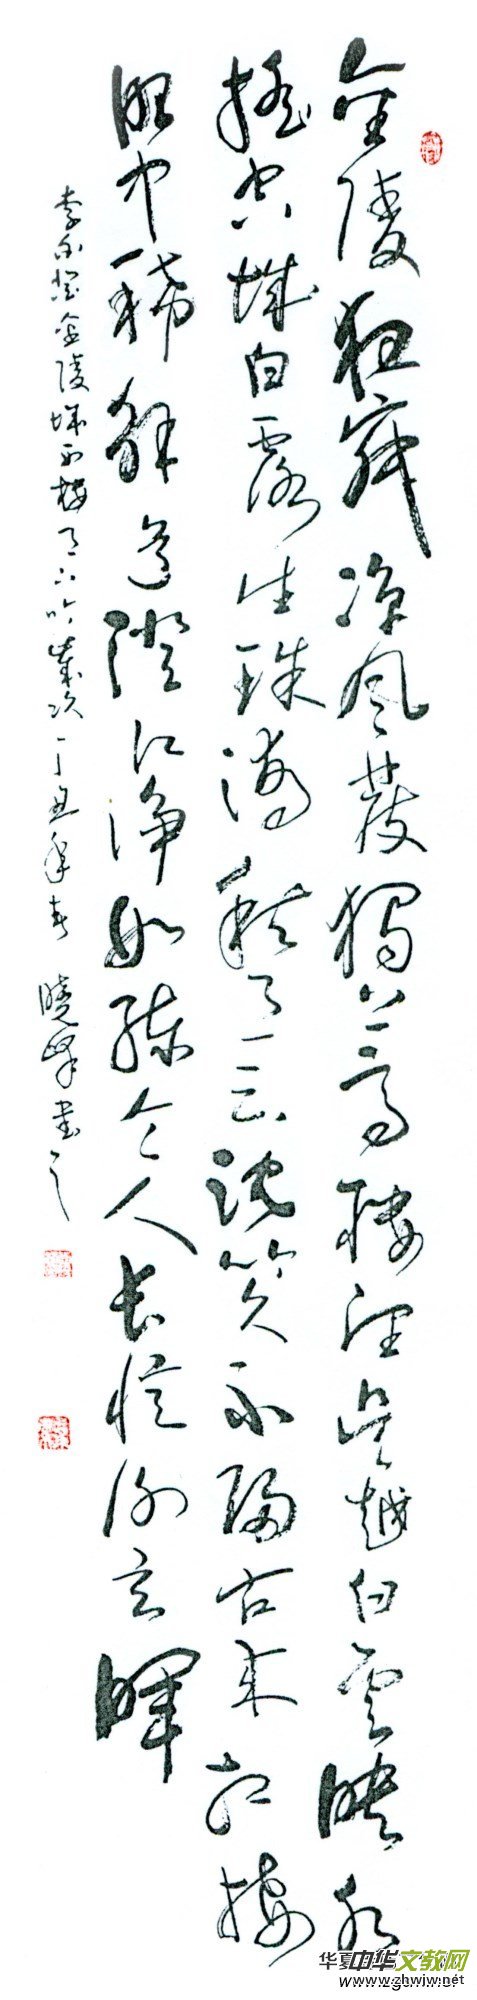 金陵寂凉风发独上高楼望吴越白云映水
摇空城白露生珠滴秋月下沉吟久不归古来相接
眼中稀解道澄江净如练令人长忆谢玄晖
李白登金陵城西楼月下吟岁次丁丑年春 晓峰书之
华夏
中华文教网
www.zhwjw.net